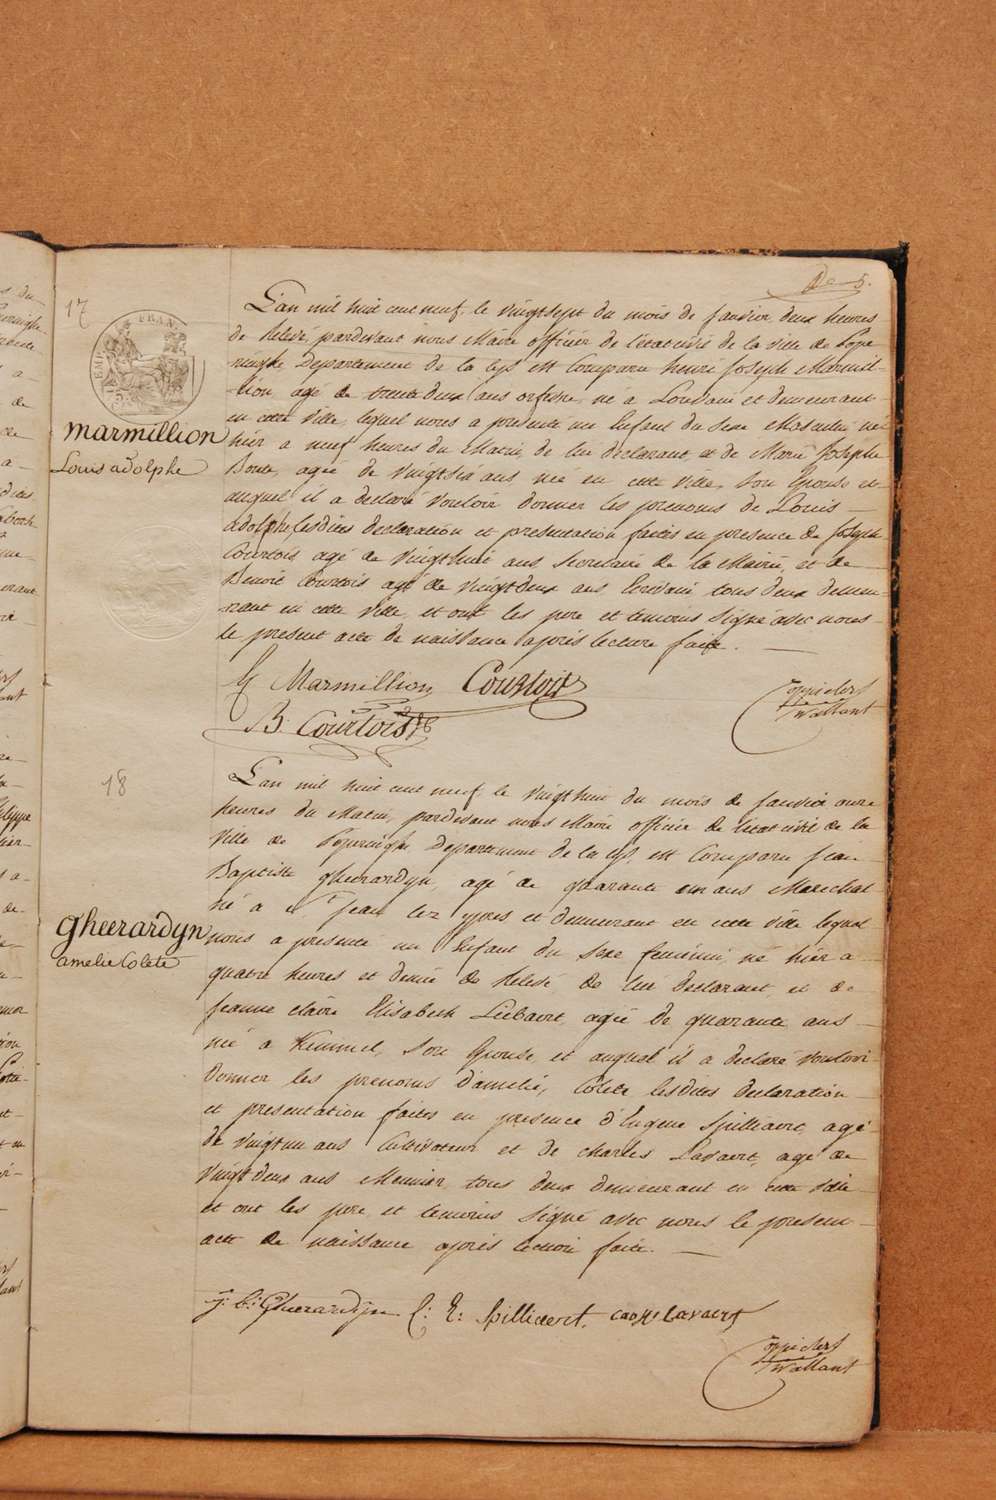 De 5.
17
EMP. FRAN.
marmillion
Louis adolphe
L'an mil huit cent neuf, le vingt sept du mois de janvier deux heures
de relevé, pardevant nous Maire officier de l'état civil de la ville de Pope
ringhe Departement de la Lys est comparu henri Joseph Marmil-
lion, agé de trente deux ans orfevre, né a Louvain et demeurant
en cette ville, lequel nous a presenté un Enfant du sexe Masculin né
hier a neuf heures du Matin, de lui declarant et de Marie Josephe
Bonte, agée de vingt six ans née en cette ville, son Epouse et
auquel il a declaré vouloir donner les prenoms de Louis
adolphe, lesdites declaration et presentation faites en presence de Joseph
Courtois agé de vingt huit ans secretaire de la Mairie, et de
Benoit Courtois agé de vingt deux ans, tous deux demeu-
rant en cette ville, et ont les pere et temoins signé avec nous
le present acte de naissance après lecture faite.
Marmillion Courtois
B. Courtois
18
gheerardyn
amelie Colete
L'an mil huit cent neuf, le vingt huit du mois de janvier onze
heures du Matin, pardevant nous Maire officier de l'état civil de la
Ville de Poperinghe, Departement de la Lys, est Comparu jean
Baptiste gheerardyn, agé de quarante cinq ans Marechal
né a St jean lez ypres et demeurant en cette ville lequel
nous a presenté un Enfant du sexe feminin, né hier a
quatre heures et demie de Relevé, de lui declarant, et de
jeanne claire Elisabeth Liebaert, agée de quarante ans
née a Kemmel, son Epouse et auquel il a declaré vouloir
donner les prenoms d'amelie, Colete lesdites declaration
et presentation faites en presence d'Eugene Spilliaert, agé
de vingt un ans Cultivateur et de charles Lavaert, agé de
vingt deux ans Meunier, tous deux demeurant en cette ville
et ont les pere et temoins signé avec nous le present
acte de naissance après lecture faite.
j: b: Gheerardyn E: Spilliaert. Lavaert